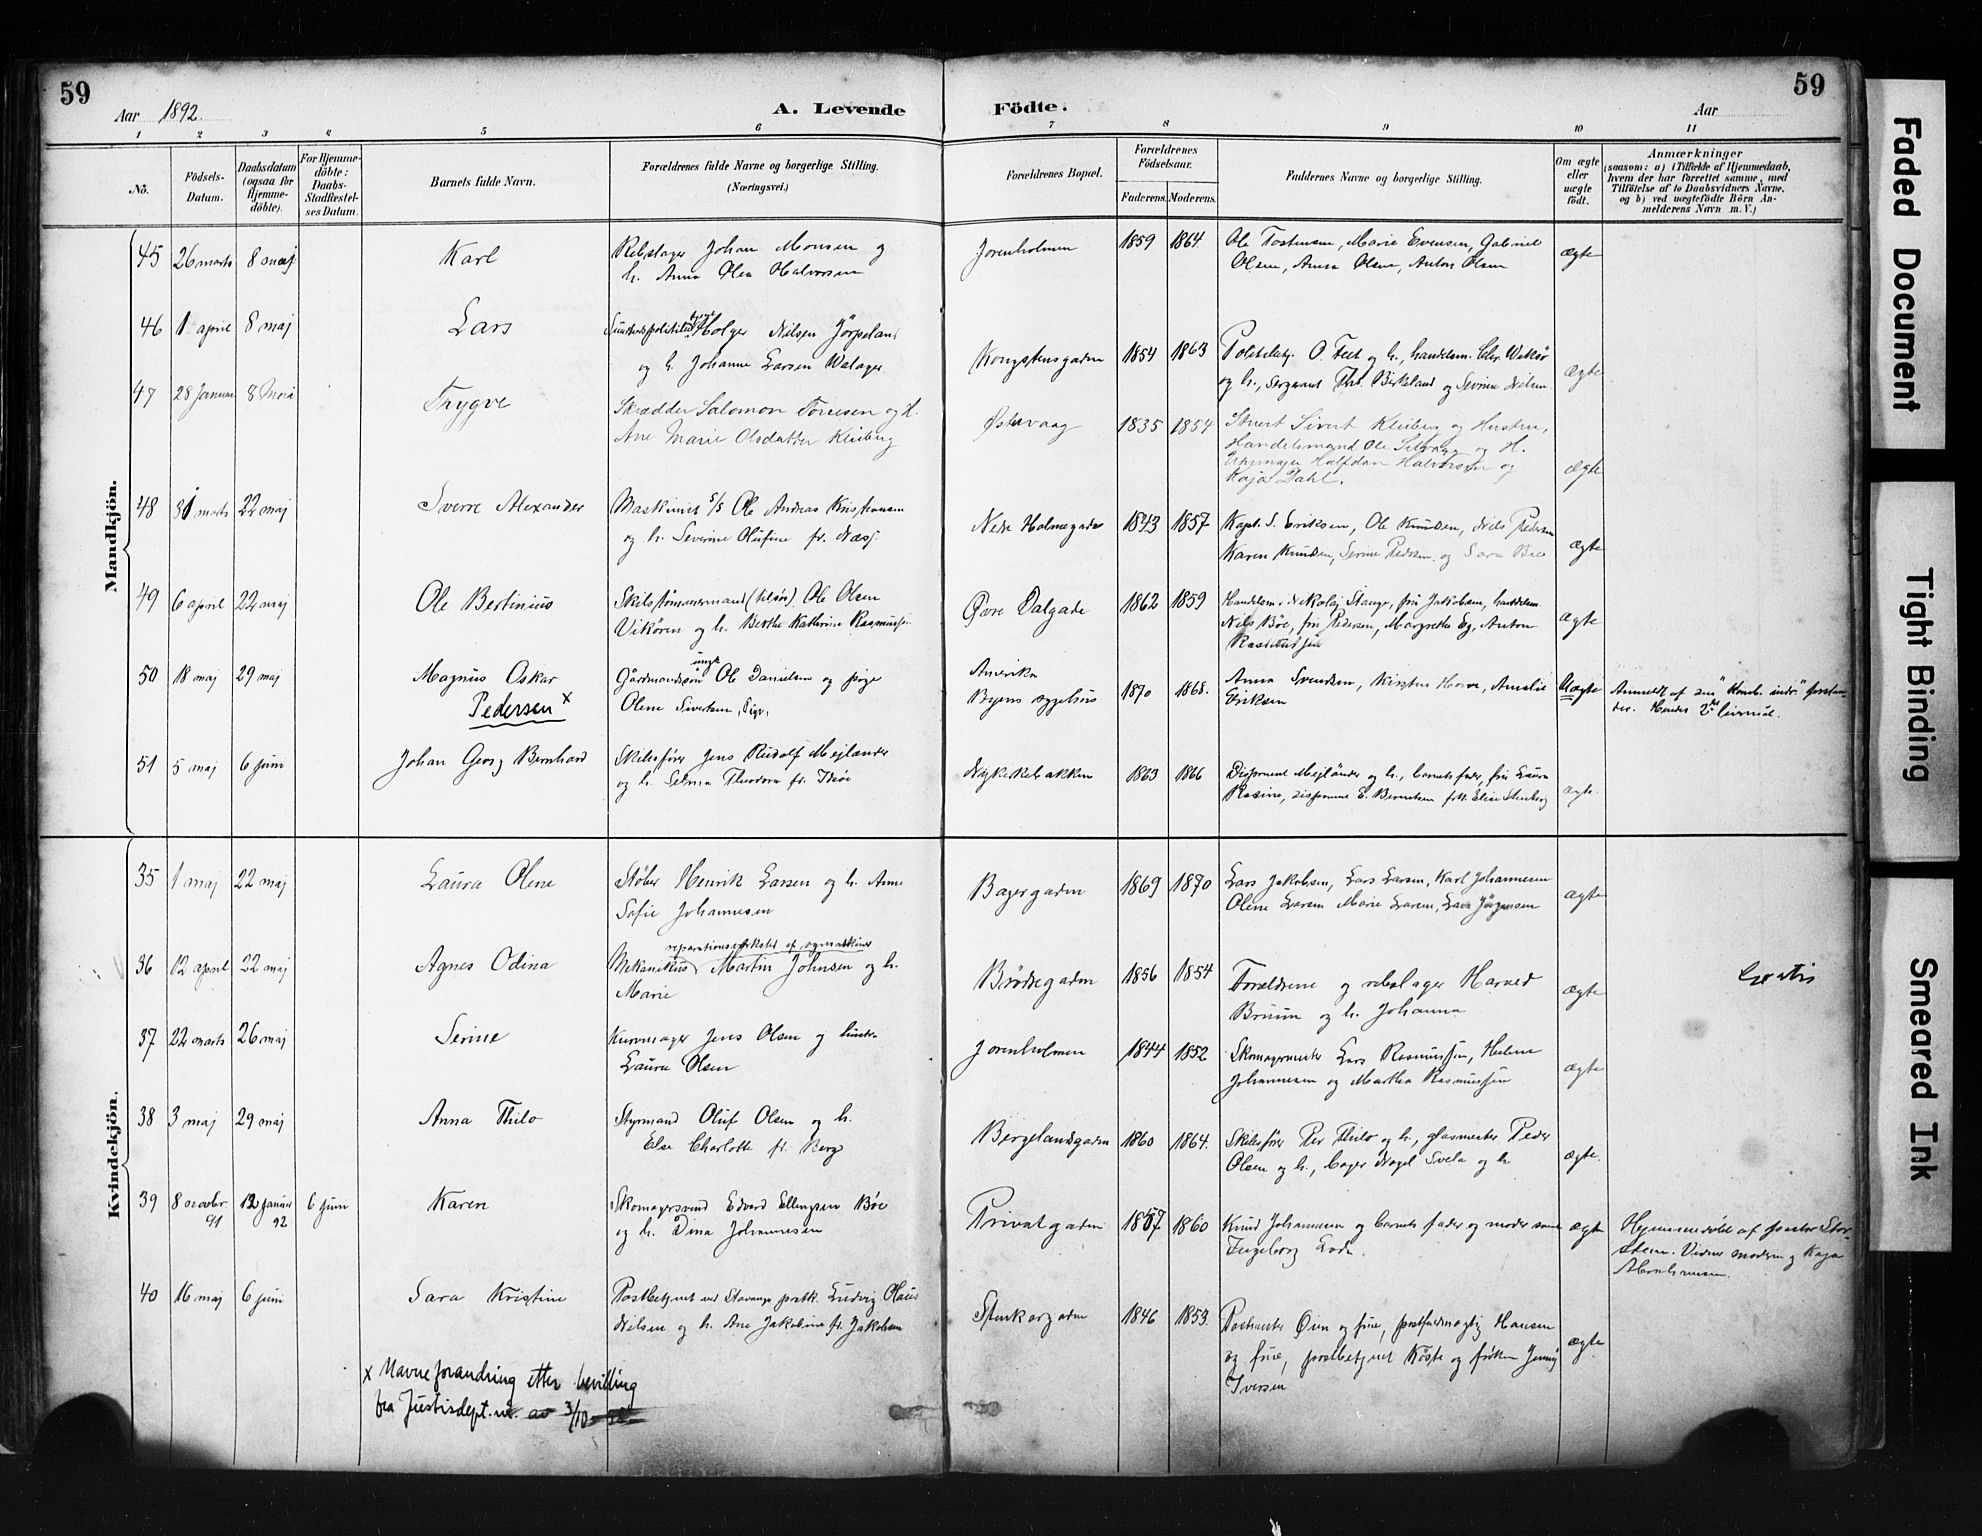 59
59
Aar 1892.
A. Levende
Födte.
Aar
1 2 3 4 5 6 7 8 9 10 11
No.
Födsels-Datum.
Daabsdatum (ogsaa för Hjemme-döbte).
For Hjemme-döbte: Daabs-Stadfæstel-ses Datum.
Barnets fulde Navn.
Forældrenes fulde Navne og borgerlige Stilling.
(Næringsvei.)
Forældrenes Bopæl.
Forældrenes Födselsaar.
Faderens. Moderens.
Faddernes Navne og borgerlige Stilling.
Om ægte eller uægte födt.
Anmærkninger
(saasom: a) i Tilfælde af Hjemmedaab,
hvem der har forrettet samme, med
Tilföielse af to Daabsvidners Navne.
og b) ved uægtefödte Börn An-
melderens Navn m. V.)
Mandkjön.
45 26 marts 8 maj Karl Rebslager Johan Monsen og
h. Anna Olea Halvorsen
Jorenholmen 1859 1864 Ole Tostensen, Marie Evensen, Gabriel
Olsen, Anna Olsen, Anton Olsen ægte
46 1 april 8 maj Lars Holger Nilsen Jörpeland
og h. Johanne Larsen Walager
Kongstensgaden 1854 1863 Politibetj. O. Tvet og h., handelsm. Chr. Wikör
og h., sergeant Th. Birkeland og Serine Nilsen ægte
47 28 Januar 8 Mai Trygve Skrædder Salomon Tonesen og H.
Ane Marie Olsdatter Kleiberg
Østervaag 1835 1854 Stuert Sivert Kleiberg og Hustru,
Handelsmand Ole Selvaag og H.
Halfdan Halvorsen og
Kaja Dahl. ægte
48 31 marts 22 maj Sverre Alexander Maskinist s/s Ole Andreas Kristensen
og h. Severine Olufine fr. Næsj.
Nedre Holmegaden 1843 1857 Kapt. S. Eriksen, Ole Knudsen, Nils Pedersen
Karen Knudsen, Serine Pedersen og Sara Bee ægte
49 6 april 22 maj Ole Bertinius Skibstömmermand (tilsös) Ole Olsen
Vikören og h. Berthe Katherine Rasmussen
Övre Dalgade 1862 1859 Handelsm. Nikolaj Stange, frü Jakobsen, handelsm.
Nils Böe, frü Pedersen, Margrethe Eg, Anton
Rasmussen ægte
50 18 maj 29 maj Magnus Oskar Gårdmandssön ungk. Ole Danielsen og pige
Pedersen x Olene Sivertsen,
Amerika
Byens sygehus 1870 1868. Anna Svendsen, Kirstine Horve, Amalie
Eriksen Uægte Anmeldt af
51 5 maj 6 juni Johan Georg Bernhard Skibsförer Jens Rudolf Mejlænder
og h. Selma Theodora fr. Thöe
Nykirkebakken 1863 1866 Disponent Mejländer og h., barnets fader, frü Laura
Rosine, disponent E. Berentsen frk. Elise Stenberg ægte
Kvindekjön.
35 1 maj 22 maj Laura Olene Støber Henrik Larsen og h. Anne
Sofie Johannesen
Bagergaden 1869 1870 Lars Jakobsen, Lars Larsen, Karl Johannesen
Olene Larsen Marie Larsen, Lava Jörgensen ægte
36 12 april 22 maj Agnes Odina reparationsverksted af symaskiner
Mekanikus Martin Johnsen og h.
Marie
Brödregaden 1856 1854 Forældrene og rebslager Harved
Bruun og h. Johanna ægte Gratis
37 22 marts 26 maj Serine Kurvmager Jens Olsen og hustr.
Laura Olsen
Jorenholmen 1844 1852 Skomagermester Lars Rasmussen, Helene
Johannesen og Martha Rasmussen ægte
38 3 maj 29 maj Anna Thilo Styrmand Oluf Olsen og h.
Else Charlotte fr. Berg
Bergelandsgaden 1860 1864. Skibsförer Per Thilo og h., glasmester Peder
Olsen og h., bager Nagel Svela og h ægte.
39 8 novbr. 91 12 januar 92 6 juni Karen Skomagersvend Edvard Ellingsen Böe
og h. Dina Johannesen
Privatgaden 1857 1860 Knud Johannesen og barnets fader og moder samt
Ingeborg Lode. ægte Hjemmedöbt af pastor Stor-
steen. Vidner moderen og Kaja
Abrahamsen.
40 16 maj 6 juni Sara Kristine Postbetjent ved Stavanger postk. Ludvig Olaus
Nilsen og h. Ane Jakobine fr. Jakobsen
Stenkargaden 1846 1853. Postmester Öien og frue, postfuldmægtig Hansen
og frue, postbetjent Köste og fröken Jenny
Iversen ægte
x Navneforandring etter bevilling
fra Justisdept. av 3/10
Faded Document
Tight Binding
Smeared Ink